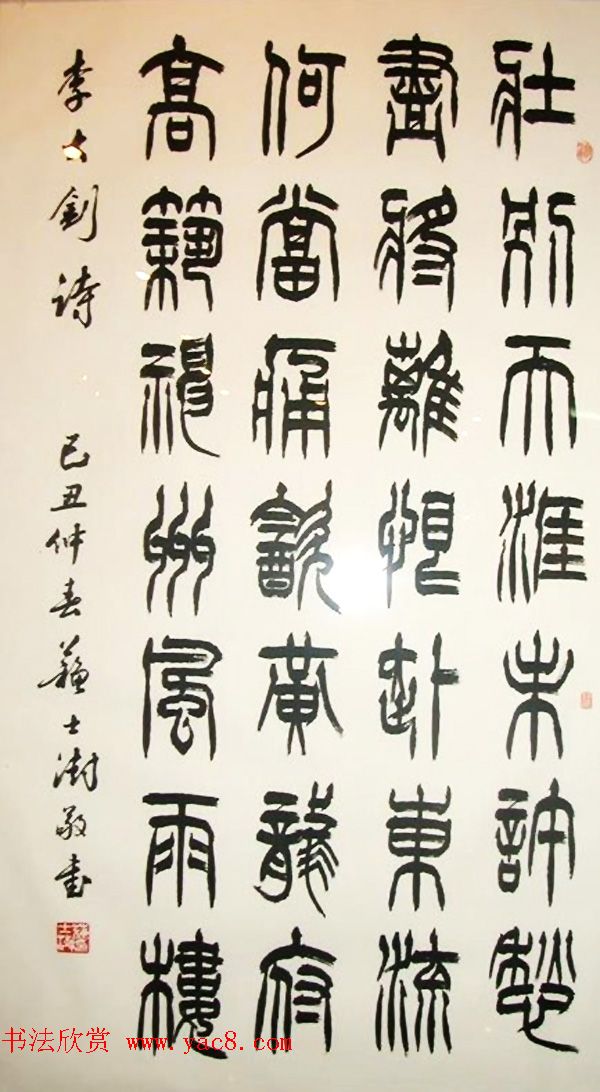 壯別天涯未許愁
盡將離恨付東流
何當痛飲黃龍府
高築神州風雨樓
李大釗詩 己丑仲春蘇士澍敬書
书法欣赏 www.yac8.com